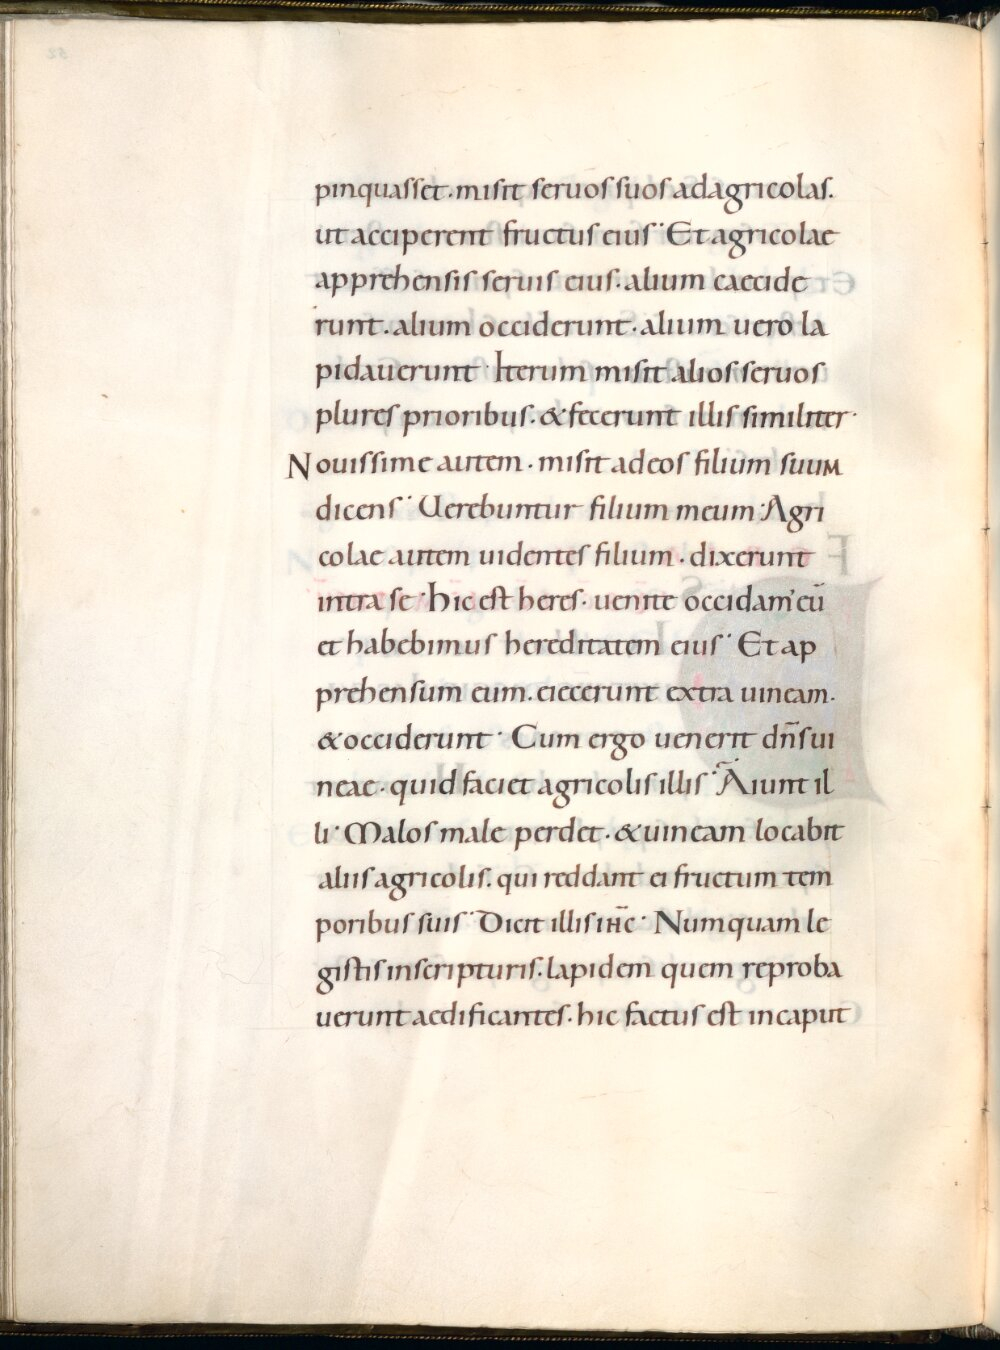 pinquasset. misit seruos suos ad agricolas.
ut acciperent fructus eius· Et agricolae
apprehensis seruis eius. alium caecide
runt. alium occiderunt. alium uero la
pidauerunt· Iterum misit alios seruos
plures prioribus. & fecerunt illis similiter·
Nouissime autem. misit ad eos filium suum
dicens· Uerebuntur filium meum· Agri
colae autem uidentes filium. dixerunt
intra se· hic est heres. uenite occidam' eū
et habebimus hereditatem eius· Et ap
prehensum eum. eiecerunt extra uineam.
& occiderunt· Cum ergo uenerit dn̄s ui
neae. quid faciet agricolis illis· Aiunt il
li· Malos male perdet. & uineam locabit
aliis agricolis. qui reddant ei fructum tem
poribus suis· Dicit illis ihc̄· Numquam le
gistis in scripturis. lapidem quem reproba
uerunt aedificantes. hic factus est in caput